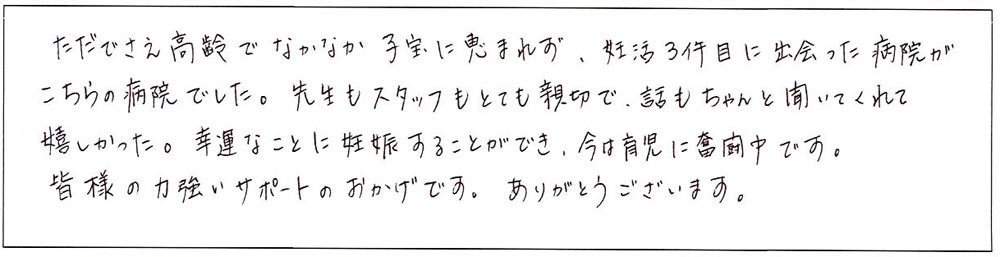 ただでさえ高齢でなかなか子宝に恵まれず、妊活3件目に出会った病院が
こちらの病院でした。先生もスタッフもとても親切で、話もちゃんと聞いてくれて
嬉しかった。幸運なことに妊娠することができ、今は育児に奮闘中です。
皆様の力強いサポートのおかげです。ありがとうございます。